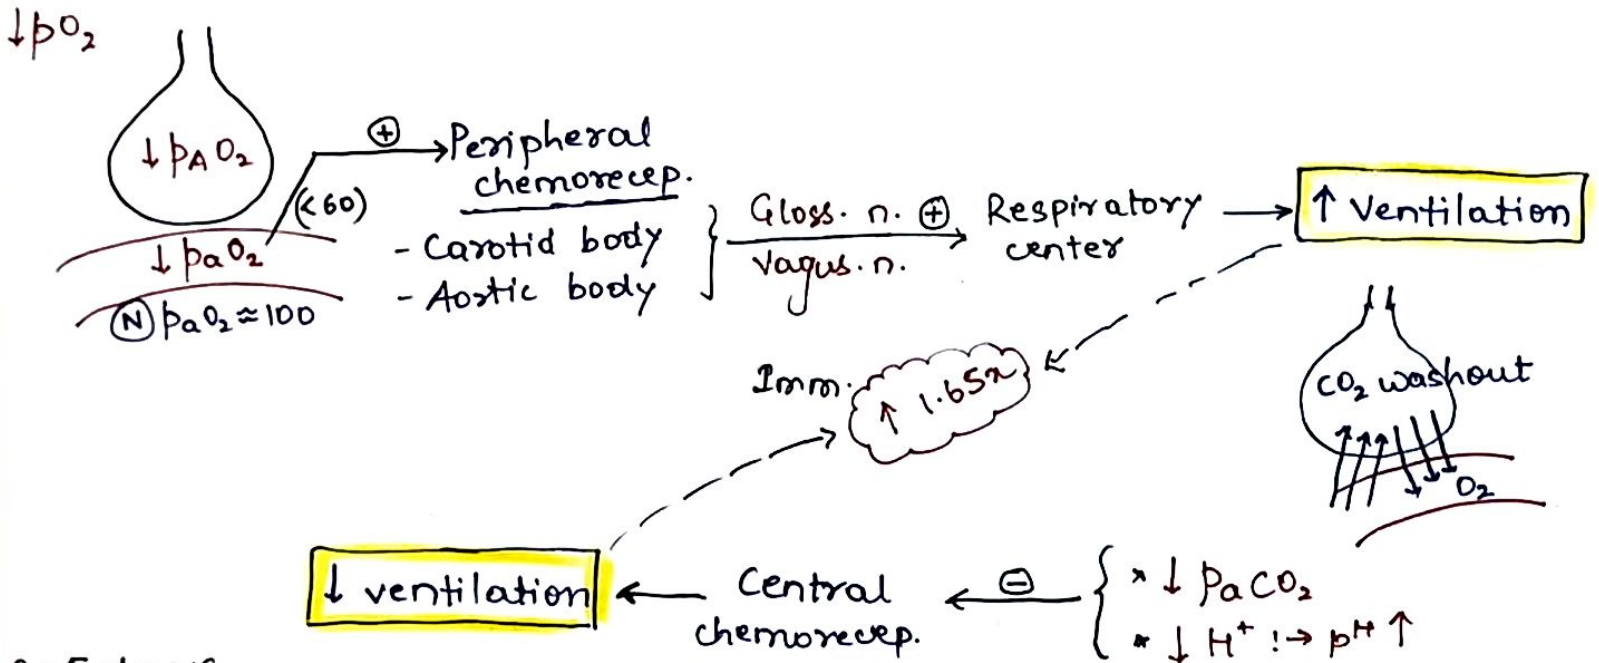 ↓pO₂
↓pAO₂
(<60)
↓paO₂
Ⓝ paO₂ ≈ 100
⊕
Peripheral
chemorecep.
- Carotid body
- Aortic body
Gloss. n. ⊕
Vagus. n.
Respiratory
center
↑ Ventilation
Imm.
↑ 1.65x
CO₂ washout
O₂
↓ ventilation
Central
chemorecep.
⊖
* ↓ PaCO₂
* ↓ H⁺ !→ pH ↑